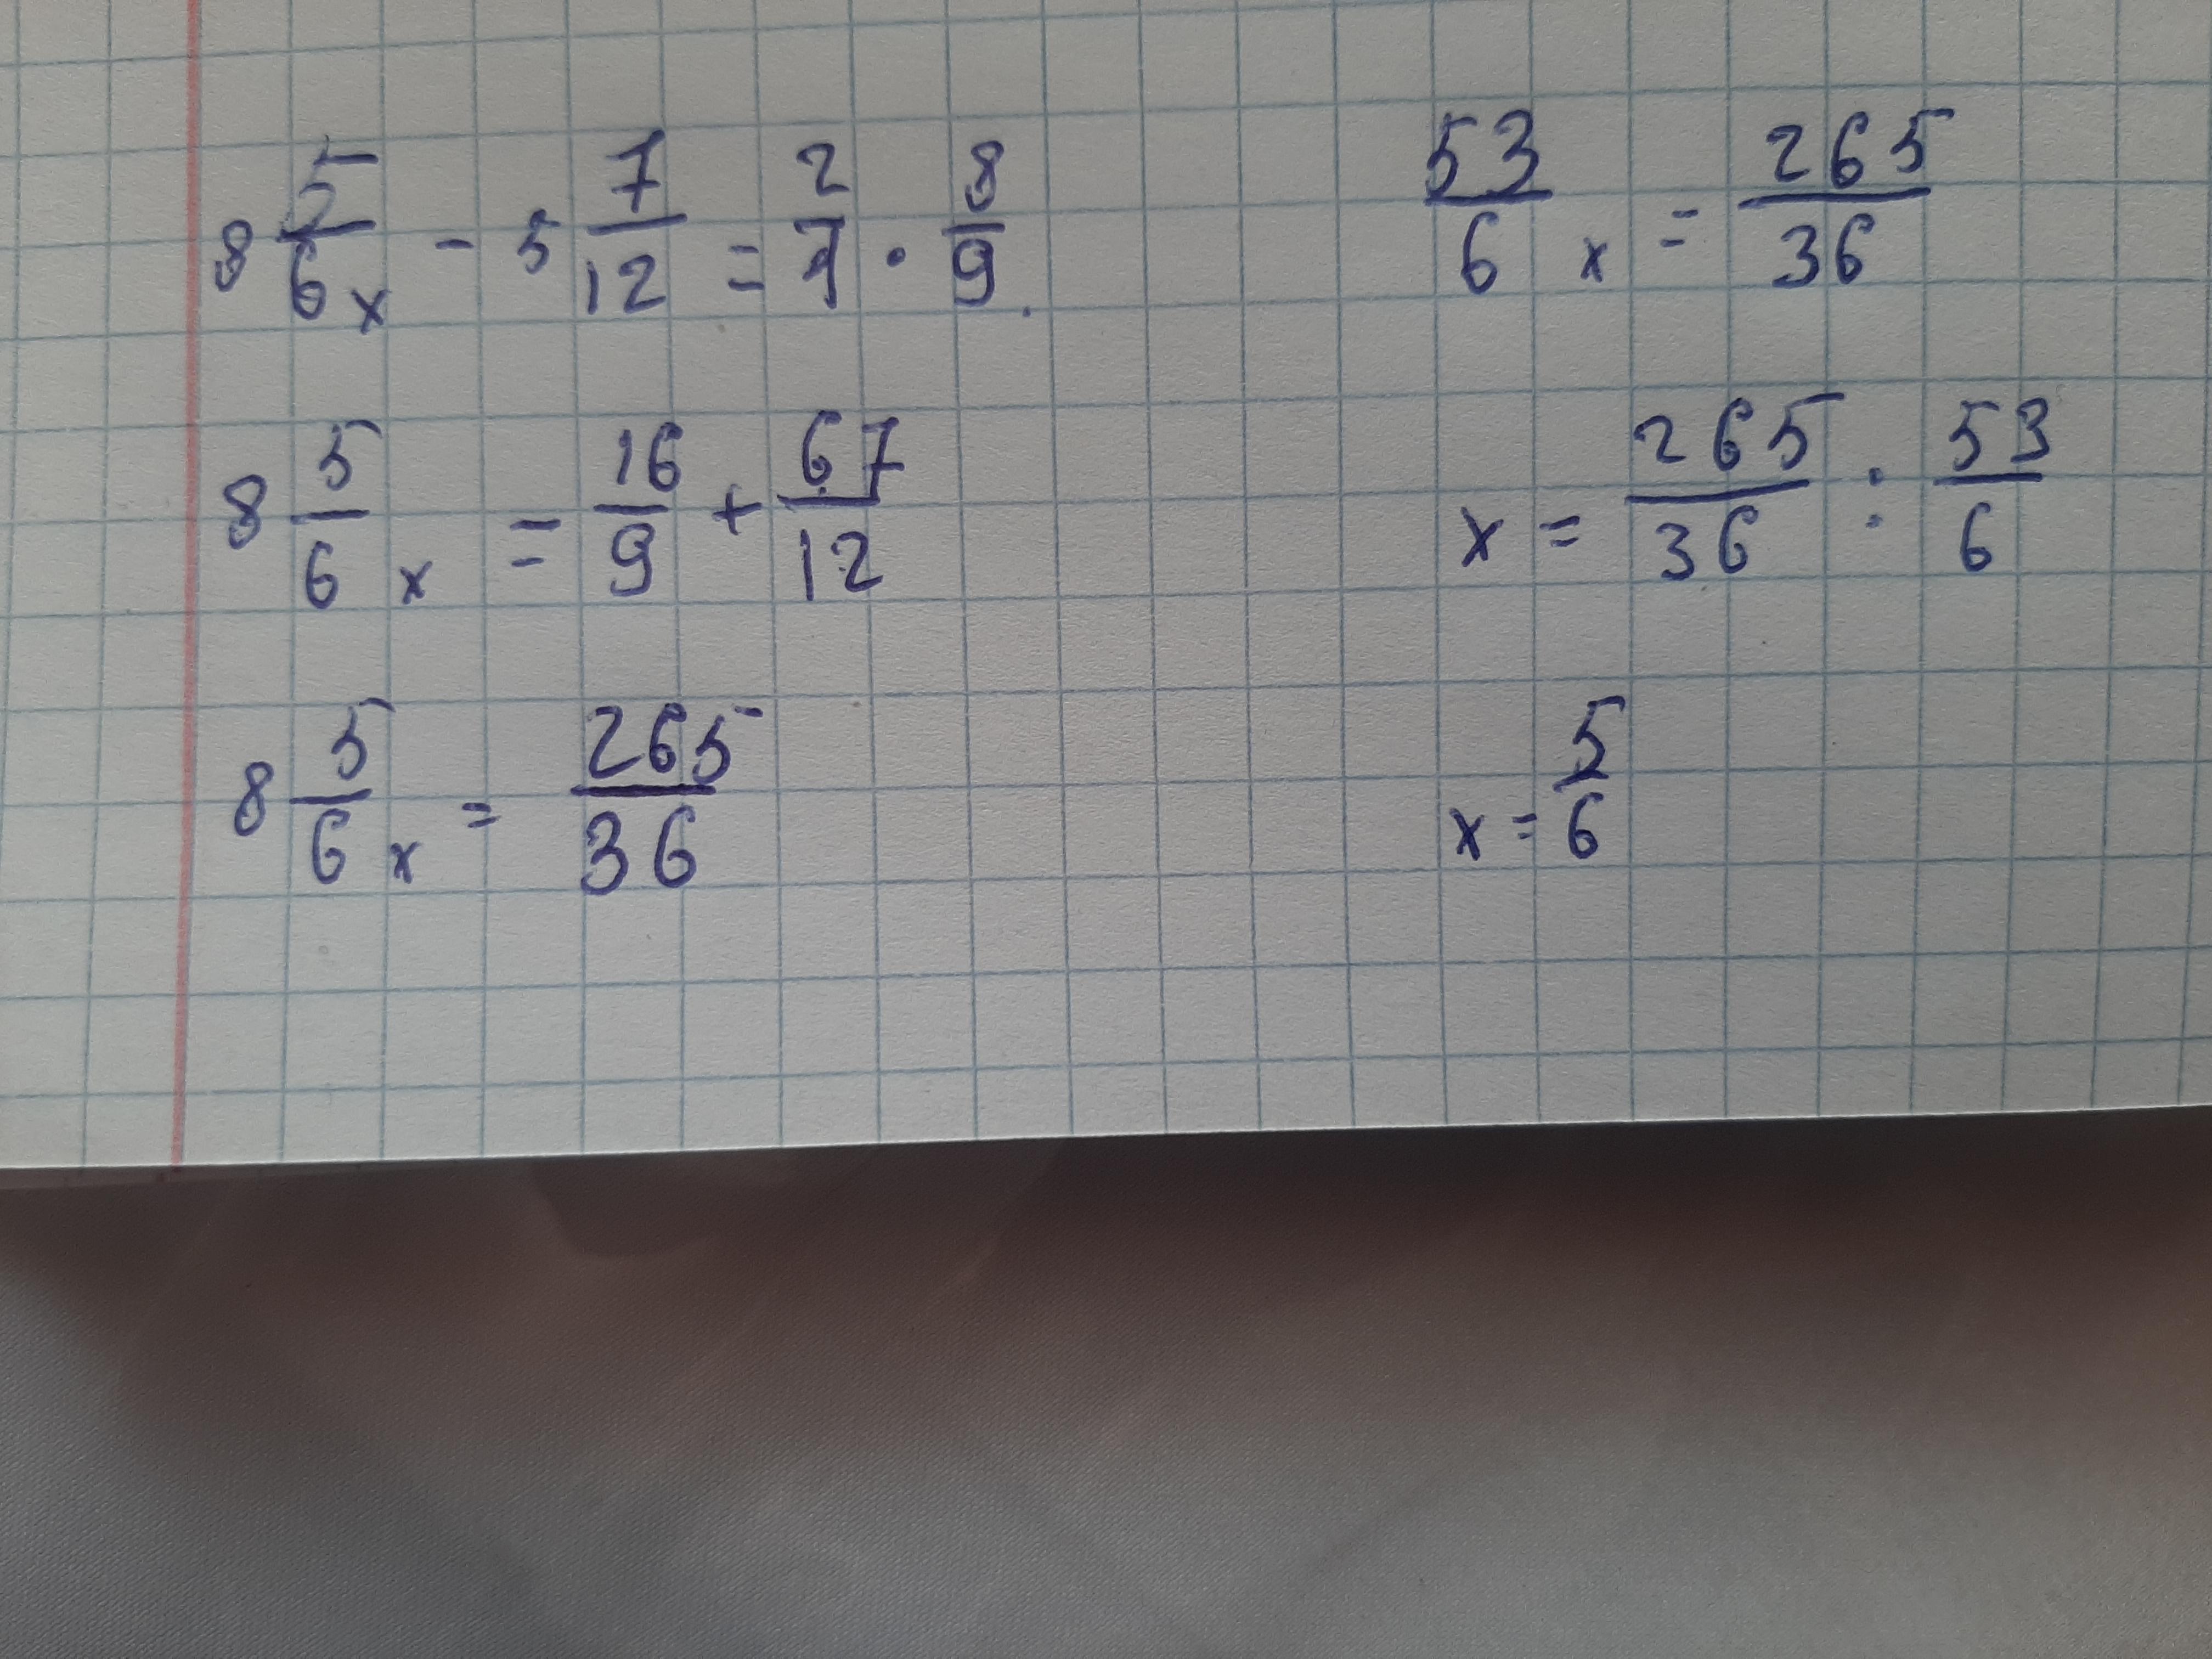 8 5/6 x - 5 7/12 = 2/1 · 8/9.
8 5/6 x = 16/9 + 67/12
8 5/6 x = 265/36
53/6 x = 265/36
x = 265/36 : 53/6
x = 5/6